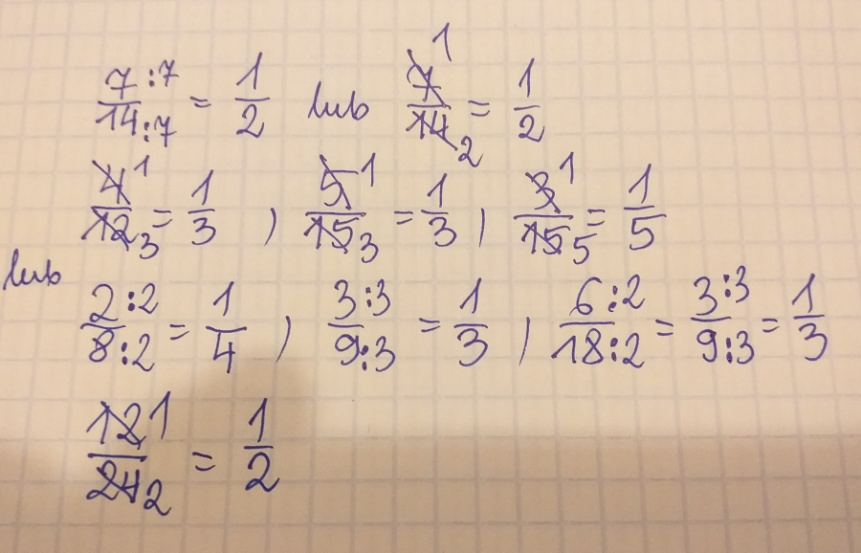 7:7/14:7 = 1/2 lub 7 1/14 2 = 1/2
4 1/12 3 = 1/3 , 5 1/15 3 = 1/3 , 3 1/15 5 = 1/5
lub
2:2/8:2 = 1/4 , 3:3/9:3 = 1/3 , 6:2/18:2 = 3:3/9:3 = 1/3
12 1/24 2 = 1/2